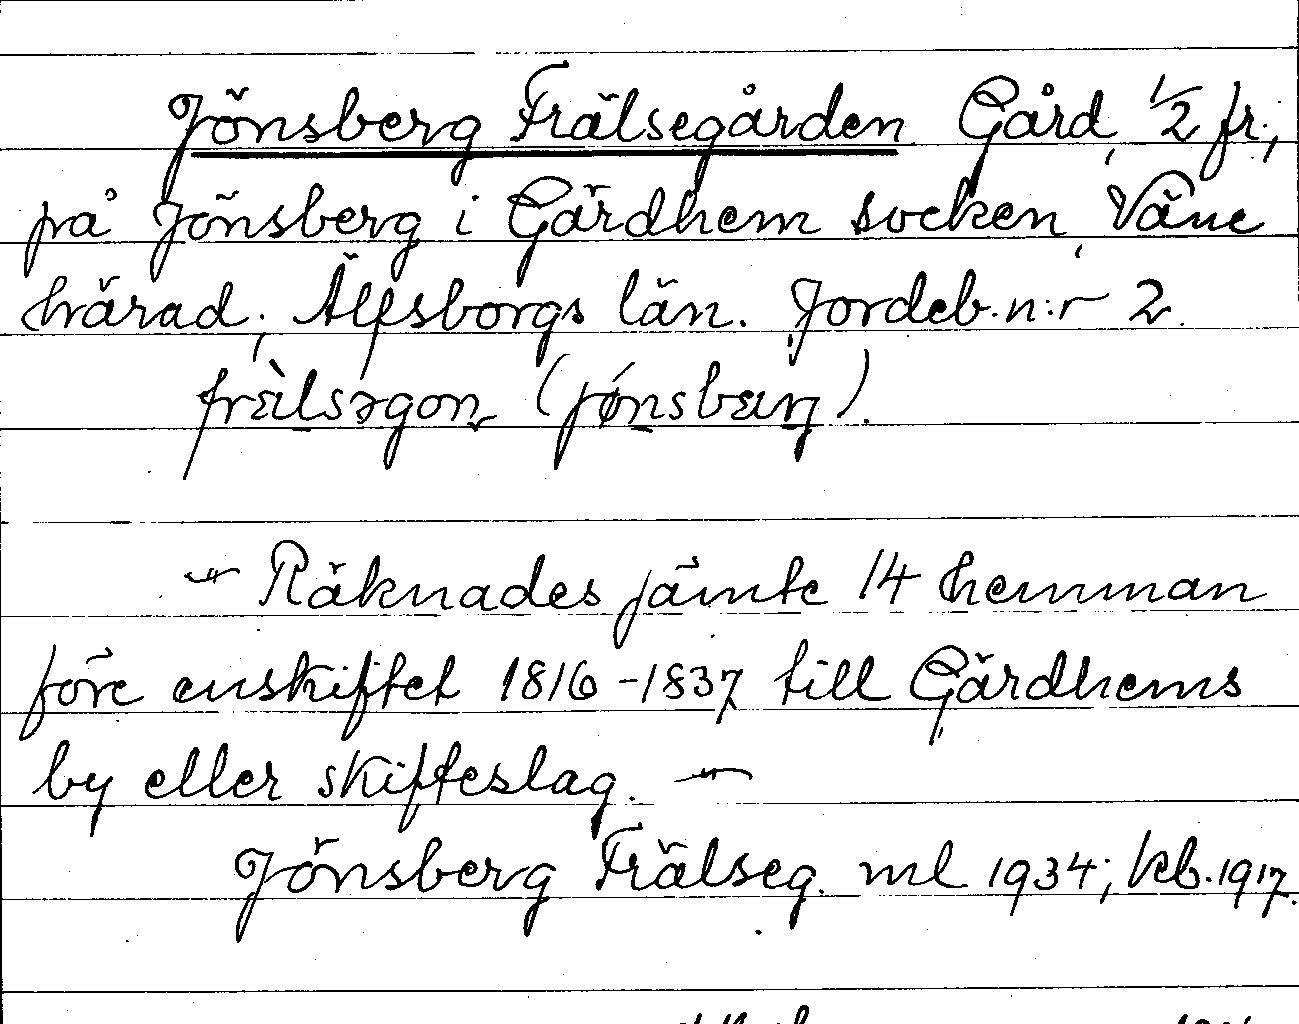 Jönsberg Frälsegården Gård, 1/2 fr.,
på Jönsberg i Gärdhem socken, Väne
härad, Älfsborgs län. Jordeb.n:r 2.
frälsəgon (jónsbærj).
— Räknades jämte 14 hemman
före enskiftet 1816-1837 till Gärdhems
by eller skifteslag. —
Jönsberg Frälseg. ml 1934; kb. 1917.